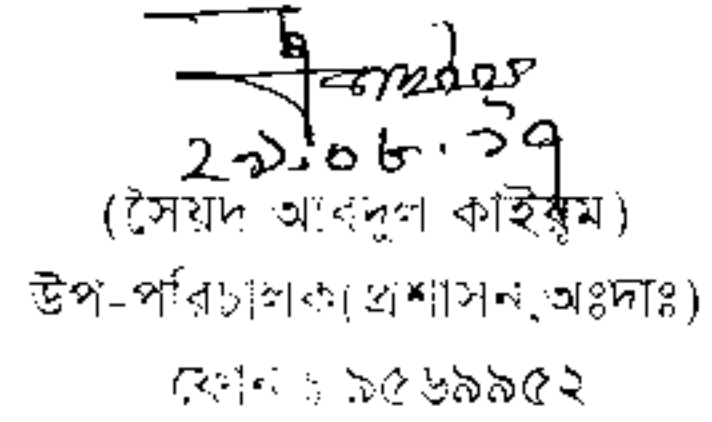 ২৯.০৮.১৭
(সৈয়দ আবদুল কাইয়ুম)
উপ-পরিচালক(প্রশাসন,অঃদাঃ)
ফোন ঃ ৯৫৬৯৯৫২